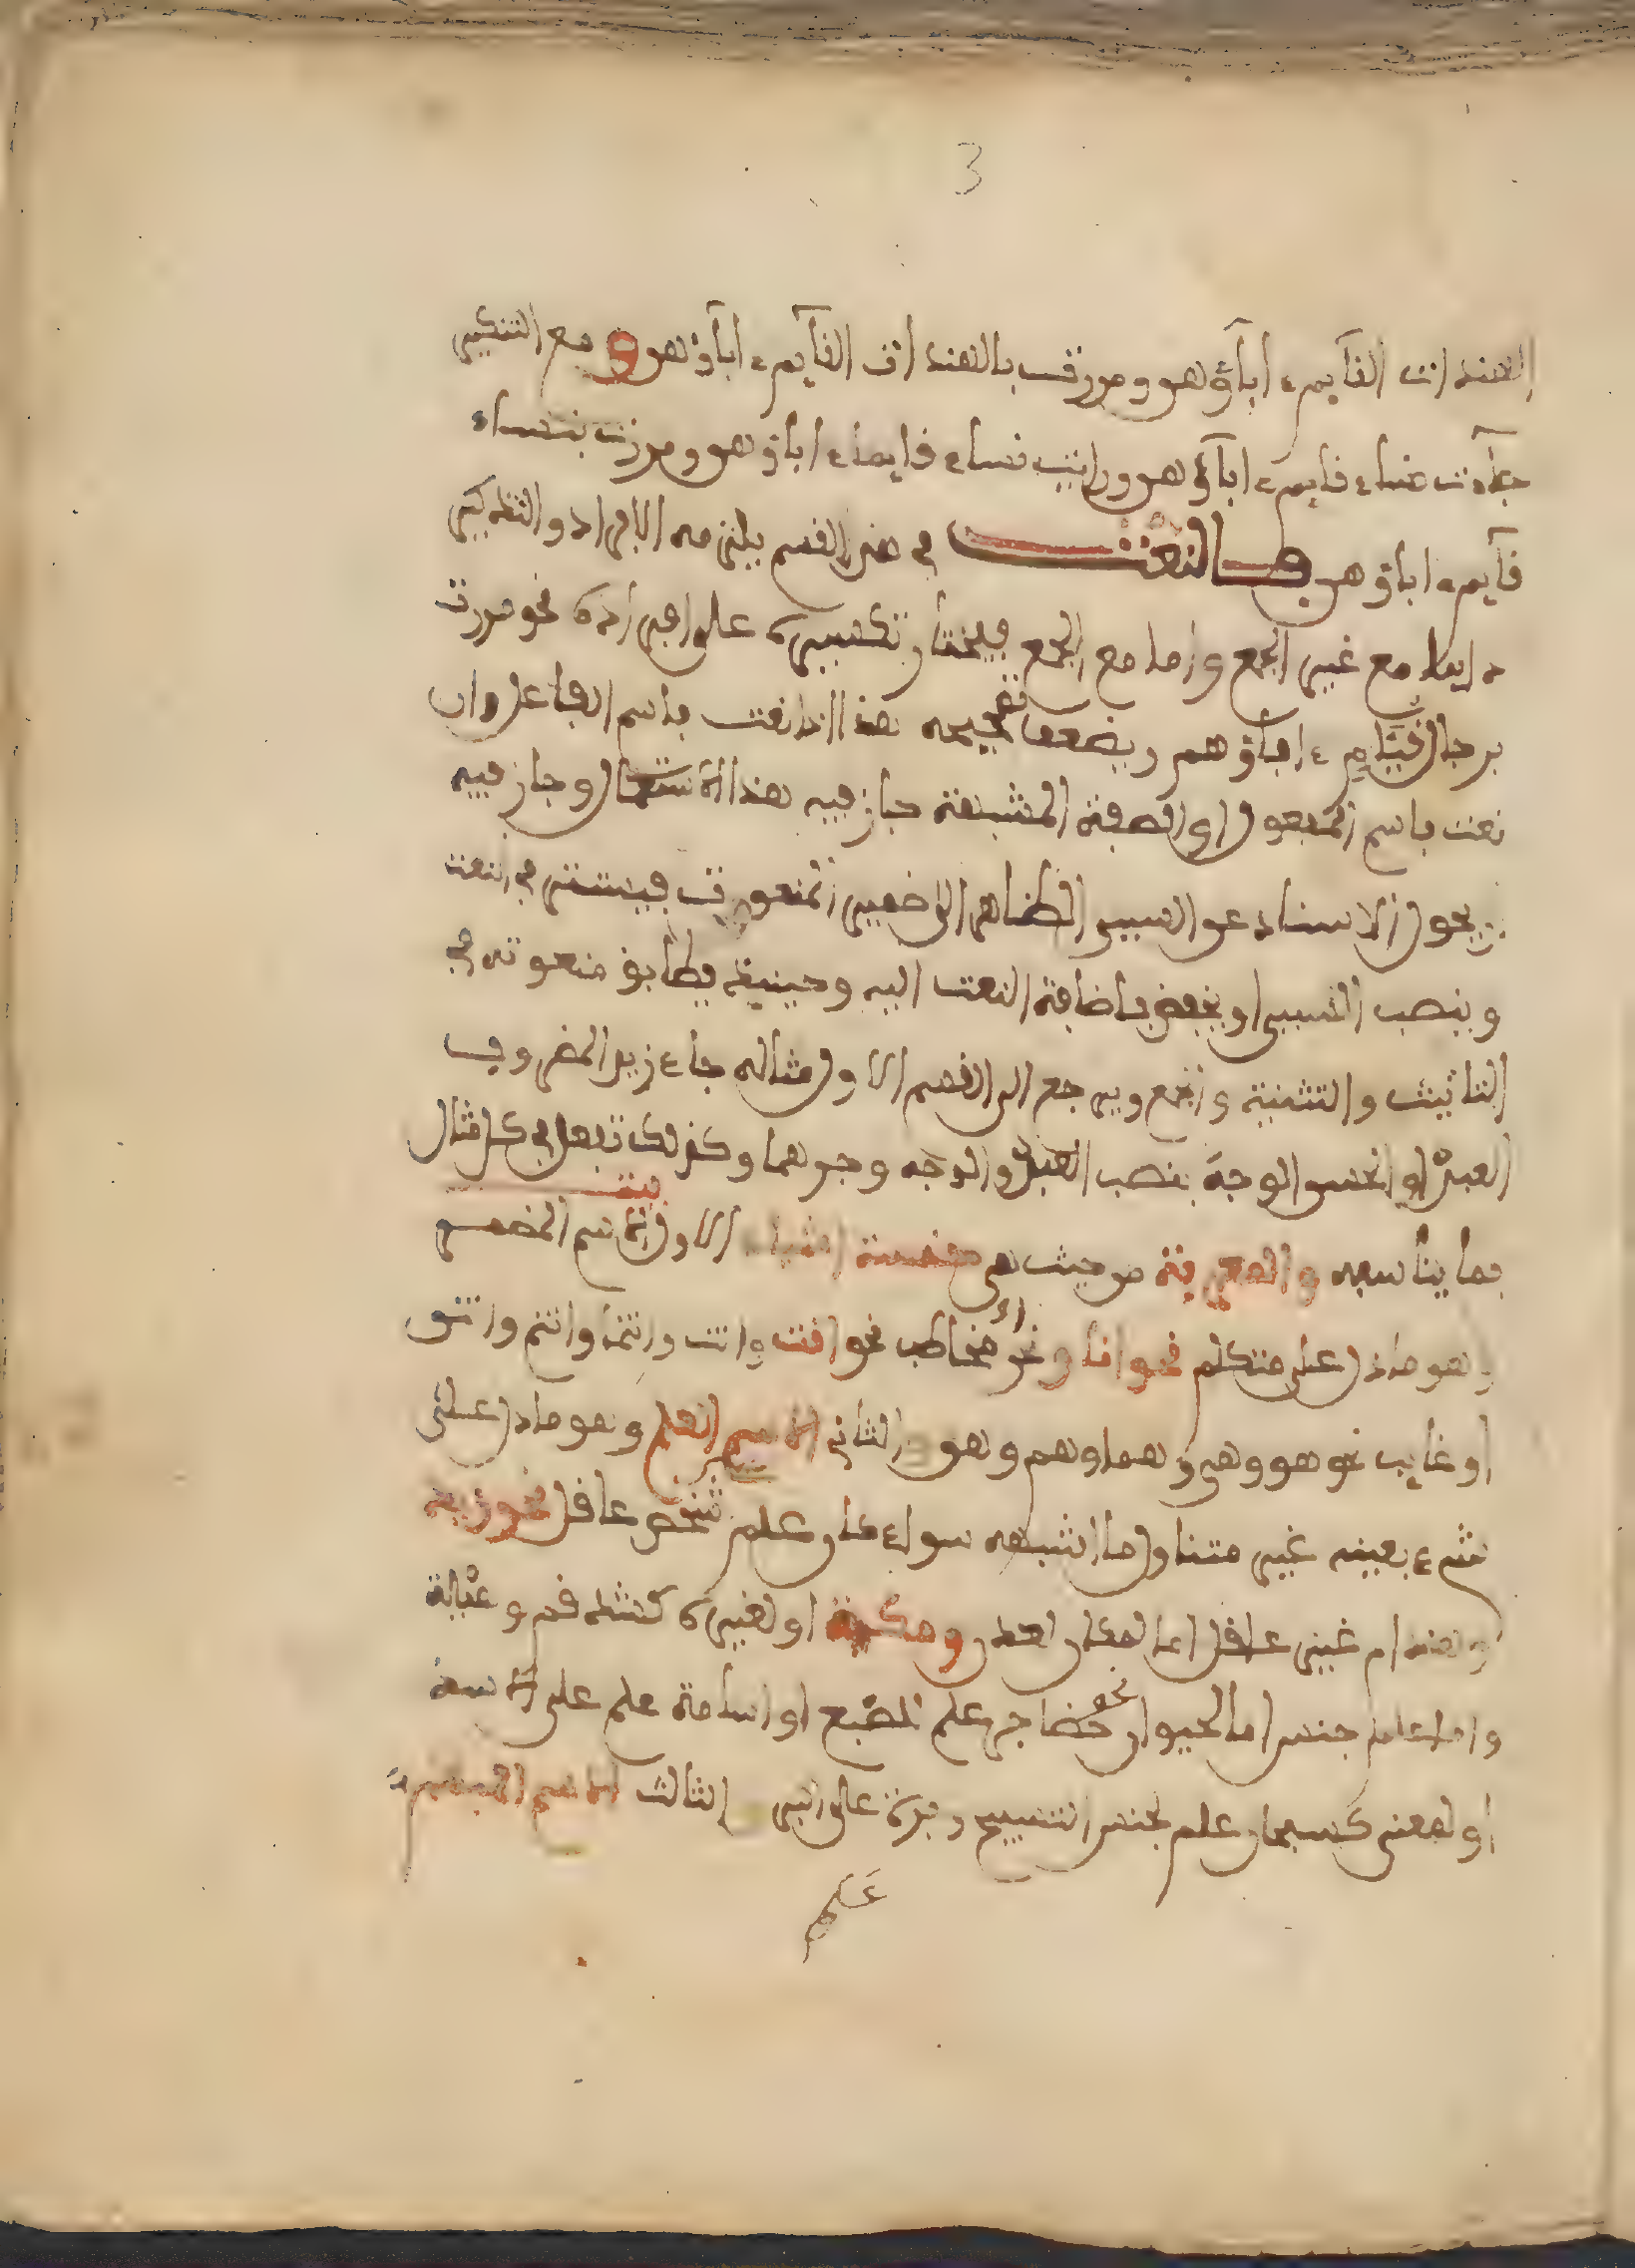 3
الهندات القآيم ءابآؤهن ومررت بالهندات القآيم ءابآؤهن و مع التنكير
جآءت نساء قايم ءابآؤهن ورايت نساء قايما ءاباؤهن ومررت بنساء
قآيم ءاباؤهن فالنعت في هذا القسم يلزمه الافراد والتذكير
دايما مع غير الجمع واما مع الجمع فيختار تكسيره على افراده نحو مررت
برجال قيام ءاباؤهم ويضعف تصحيحه هذا اذا نعت باسم الفاعل وان
نعت باسم المفعول او الصفة المشبهة جاز فيه هذا الاستعمال وجاز فيه
ان يحول الاسناد عن السببي الظاهر الى ضمير المنعوت فيستتر في النعت
وينصب السببي او يخفض باضافة النعت اليه وحينيذ يطابق منعوته في
التانيث والتثنية والجمع ويرجع الى القسم الاول مثاله جاء زيد المضروب
العبد او الحسن الوجه بنصب العبد والوجه وجرهما وكذلك تفعل في كل مثال
بما يناسبه والمعرفة من حيث هي خمسة اشياء الاول الاسم المضمر
وهو ما دل على متكلم نحو انا ونحن او مخاطب نحو انت وانت وانتما وانتم وانتن
او غايب نحو هو وهي وهما وهم وهن والثاني الاسم العلم وهو ما دل على
شيء بعينه غير متناول ما اشبهه سواء كان علم شخص عاقل نحو زيد
وهند ام غير عاقل اما لمكان كعدن ومكة او لغيره كشذقم و
واما علم جنس اما لحيوان نحو حضاجر علم للضبع او اسامة علم على الاسد
او لمعنى كسبحان علم لجنس التسبيح وبرة على البر الثالث الاسم المبهم
علم